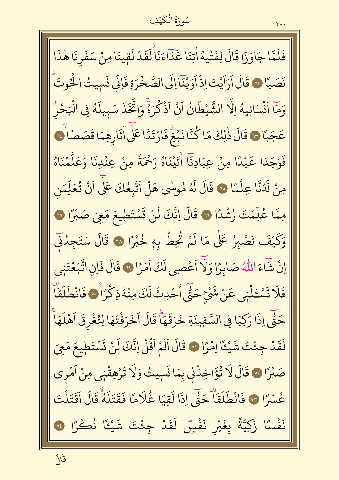 سُورَةُ الْكَهْفِ
٣٠٠
فَلَمَّا جَاوَزَا قَالَ لِفَتٰيهُ اٰتِنَا غَدَٓاءَنَاۘ لَقَدْ لَقٖينَا مِنْ سَفَرِنَا هٰذَا
نَصَبًا ﴿٦٢﴾ قَالَ اَرَاَيْتَ اِذْ اَوَيْنَٓا اِلَى الصَّخْرَةِ فَاِنّٖى نَسٖيتُ الْحُوتَۘ
وَمَٓا اَنْسَانٖيهُ اِلَّا الشَّيْطَانُ اَنْ اَذْكُرَهُۚ وَاتَّخَذَ سَبٖيلَهُ فِى الْبَحْرِۗ
عَجَبًا ﴿٦٣﴾ قَالَ ذٰلِكَ مَا كُنَّا نَبْغِۗ فَارْتَدَّا عَلٰٓى اٰثَارِهِمَا قَصَصًاۙ ﴿٦٤﴾
فَوَجَدَا عَبْدًا مِنْ عِبَادِنَٓا اٰتَيْنَاهُ رَحْمَةً مِنْ عِنْدِنَا وَعَلَّمْنَاهُ
مِنْ لَدُنَّا عِلْمًا ﴿٦٥﴾ قَالَ لَهُ مُوسٰى هَلْ اَتَّبِعُكَ عَلٰٓى اَنْ تُعَلِّمَنِ
مِمَّا عُلِّمْتَ رُشْدًا ﴿٦٦﴾ قَالَ اِنَّكَ لَنْ تَسْتَطٖيعَ مَعِىَ صَبْرًا ﴿٦٧﴾
وَكَيْفَ تَصْبِرُ عَلٰى مَا لَمْ تُحِطْ بِهٖ خُبْرًا ﴿٦٨﴾ قَالَ سَتَجِدُنٖٓى
اِنْ شَٓاءَ اللّٰهُ صَابِرًا وَلَٓا اَعْصٖى لَكَ اَمْرًا ﴿٦٩﴾ قَالَ فَاِنِ اتَّبَعْتَنٖى
فَلَا تَسْـَٔلْنٖى عَنْ شَیْءٍ حَتّٰٓى اُحْدِثَ لَكَ مِنْهُ ذِكْرًا۟ ﴿٧٠﴾ فَانْطَلَقَا۠
حَتّٰٓى اِذَا رَكِبَا فِى السَّفٖينَةِ خَرَقَهَاۜ قَالَ اَخَرَقْتَهَا لِتُغْرِقَ اَهْلَهَاۚ
لَقَدْ جِئْتَ شَيْـًٔا اِمْرًا ﴿٧١﴾ قَالَ اَلَمْ اَقُلْ اِنَّكَ لَنْ تَسْتَطٖيعَ مَعِىَ
صَبْرًا ﴿٧٢﴾ قَالَ لَا تُؤَاخِذْنٖى بِمَا نَسٖيتُ وَلَا تُرْهِقْنٖى مِنْ اَمْرٖى
عُسْرًا ﴿٧٣﴾ فَانْطَلَقَا۠ حَتّٰٓى اِذَا لَقِيَا غُلَامًا فَقَتَلَهُۙ قَالَ اَقَتَلْتَ
نَفْسًا زَكِيَّةً بِغَيْرِ نَفْسٍۜ لَقَدْ جِئْتَ شَيْـًٔا نُكْرًا ﴿٧٤﴾
قَالَ